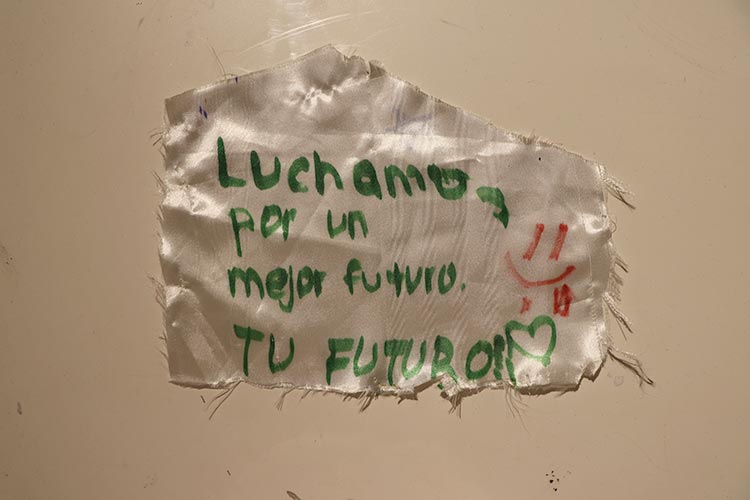 Luchamos
por un
mejor futuro.
TU FUTURO!!